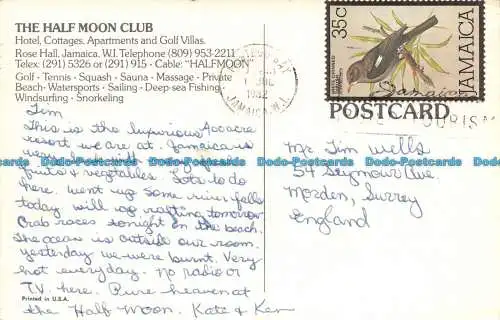 THE HALF MOON CLUB
Hotel, Cottages, Apartments and Golf Villas.
Rose Hall, Jamaica, W.I. Telephone (809) 953-2211
Telex: (291) 5326 or (291) 915 - Cable: "HALFMOON"
Golf - Tennis - Squash - Sauna - Massage - Private
Beach - Watersports - Sailing - Deep-sea Fishing -
Windsurfing - Snorkeling
Tim
This is the luxurious 400 acre
resort we are at. Jamaica is
very
fruits & vegetables. Lots to do
here. Went up some river falls
today will go rafting tomorrow
Crab races tonight on the beach.
The ocean is outside our room.
yesterday we were burnt. Very
hot everyday. No radio or
TV here. Pure heaven at
the Half Moon. Kate & Ken
Printed in U.S.A.
BAY
JUL
1982
JAMAICA, W.I.
35c
JAMAICA
Jamaica
POSTCARD
TOURISM
Mr. Tim Wells
54 Seymour Ave
Morden, Surrey
England
Dodo-Postcards Dodo-Postcards Dodo-Postcards Dodo-Postcards